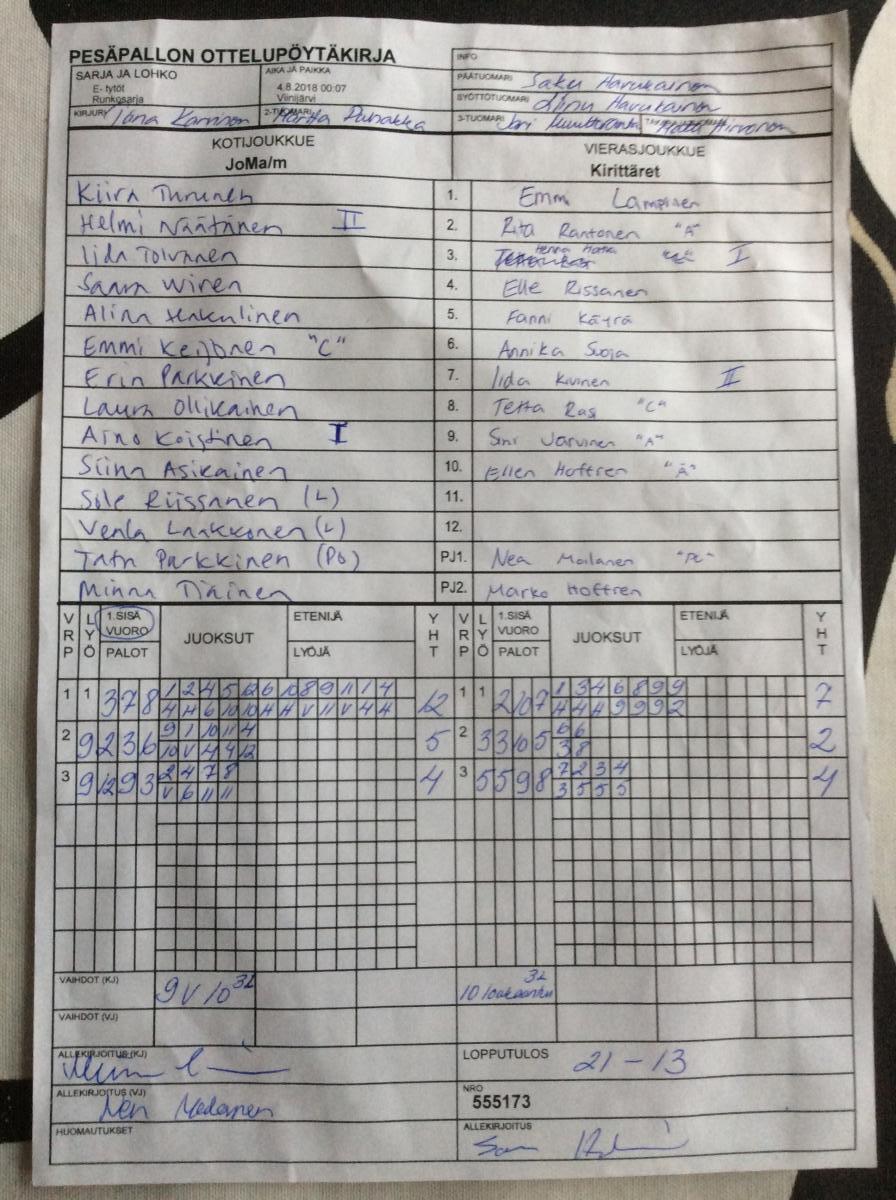 PESÄPALLON OTTELUPÖYTÄKIRJA
INFO
SARJA JA LOHKO
E- tytöt
Runkosarja
AIKA JA PAIKKA
4.8.2018 00:07
Viinijärvi
PÄÄTUOMARI Saku Harukainen
SYÖTTÖTUOMARI Harukainen
KIRJURI
2-TUOMARI
3-TUOMARI Jari
KOTIJOUKKUE
JoMa/m
VIERASJOUKKUE
Kirittäret
Kiira Thrunen 1. Emmi Lampinen
Helmi Näätänen II 2. Rita Rantonen "A"
Iida Tolvanen 3. Henna Hotka I
Saara Wiren 4. Elle Rissanen
Alina Hakulinen 5. Fanni Käyrä
Emmi Keijonen "C" 6. Annika Suoja
Erin Parkkinen 7. Iida Kivinen II
Laura Ollikainen 8. Tetta Ras "C"
Aino Koistinen I 9. Sini Jarvinen "A"
Siina Asikainen 10. Ellen Hoffren "Ä"
Sole Riissanen (L) 11.
Venla Laakkonen (L) 12.
Tatn Parkkinen (Po) PJ1. Nea Moilanen
Minna Tiainen PJ2. Marko Hoffren
VRP LYÖ 1.SISÄ VUORO PALOT JUOKSUT ETENIJÄ LYÖJÄ YHT VRP LYÖ 1.SISÄ VUORO PALOT JUOKSUT ETENIJÄ LYÖJÄ YHT
1 1 3 7 8 1 2 4 5 12 6 10 8 9 11 1 4 12 1 1 2 10 7 1 3 4 6 8 9 9 7
4 4 6 10 10 4 4 V 11 V 4 4 4 4 4 9 9 9 2
2 9 2 3 6 9 1 10 11 4 5 2 3 3 10 5 6 6 2
10 V 4 4 12 3 8
3 9 12 9 3 2 4 7 8 4 3 5 5 9 8 7 2 3 4 4
V 6 11 11 3 5 5 5
VAIHDOT (KJ) 9 V 10 3L 3L
10
VAIHDOT (VJ)
ALLEKIRJOITUS (KJ)
LOPPUTULOS 21 – 13
ALLEKIRJOITUS (VJ) Nea Moilanen
NRO
555173
HUOMAUTUKSET
ALLEKIRJOITUS